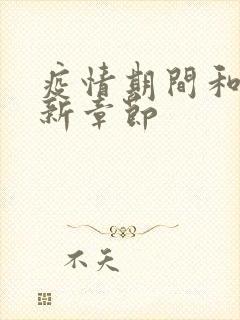 疫情期間和
新章節
不天